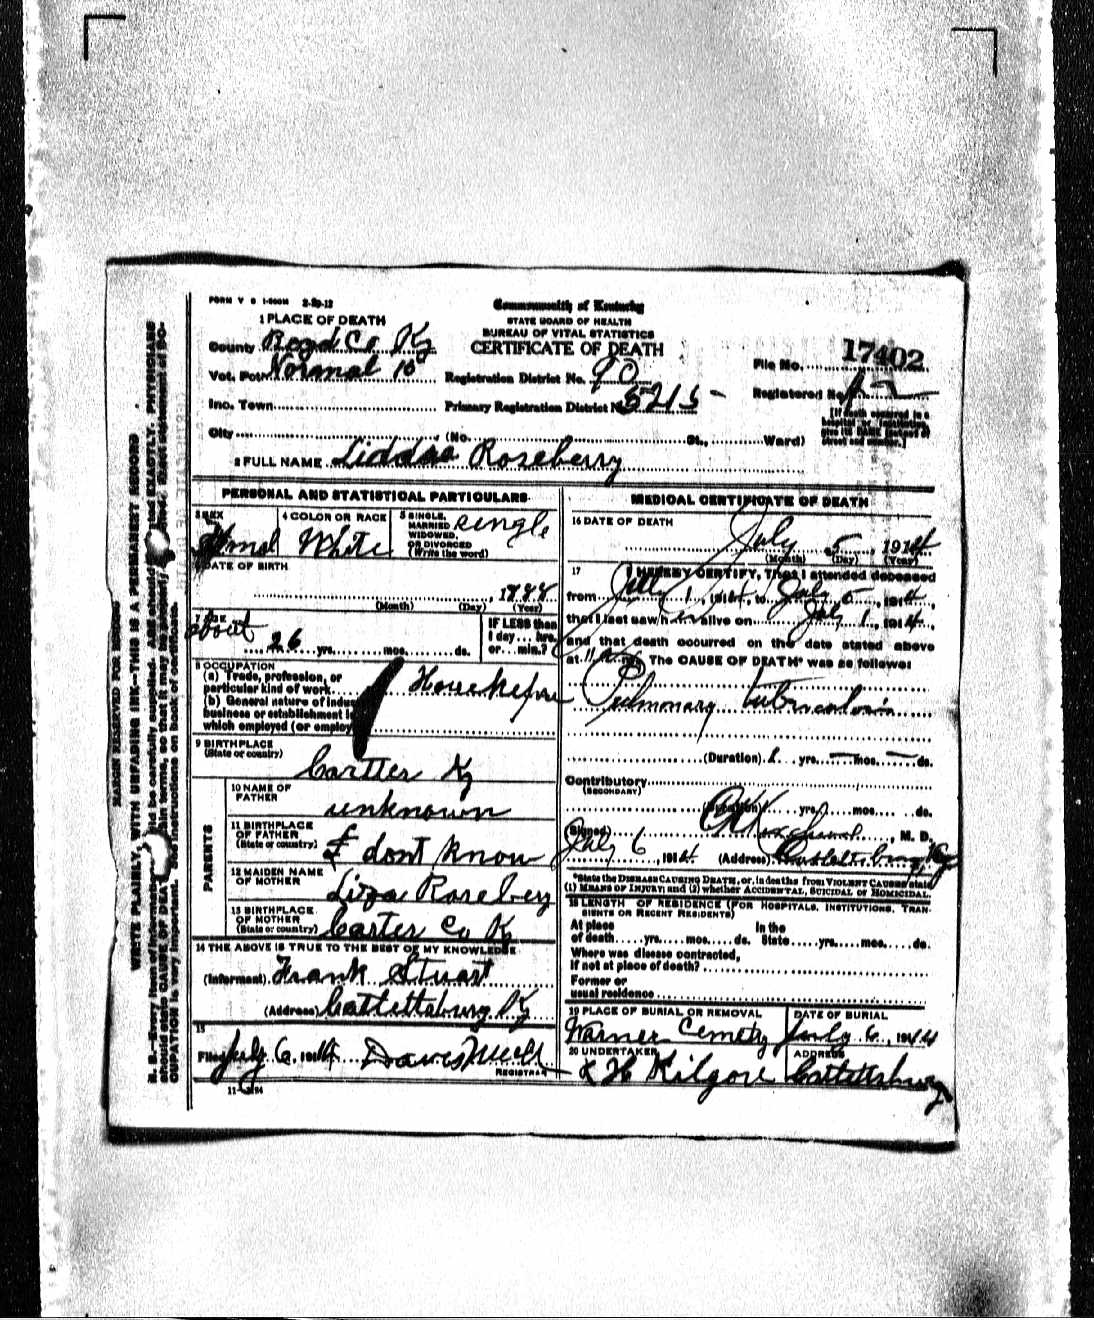 FORM V S 1-500M 2-20-12
Commonwealth of Kentucky
STATE BOARD OF HEALTH
BUREAU OF VITAL STATISTICS
CERTIFICATE OF DEATH
1 PLACE OF DEATH
County Boyd Co Ky
Vot. Pct. Normal 10
Inc. Town
City (No. St., Ward)
Registration District No. 90
Primary Registration District No. 5215
File No. 17402
Registered No.
[If death occurred in a
hospital or institution,
give its NAME instead of
street and number.]
2 FULL NAME Roseberry
PERSONAL AND STATISTICAL PARTICULARS
3 SEX
4 COLOR OR RACE White
5 SINGLE,
MARRIED
WIDOWED,
OR DIVORCED
(Write the word) single
6 DATE OF BIRTH
, 1888
(Month) (Day) (Year)
7 AGE about
26 yrs. mos. ds.
IF LESS than
1 day... hrs.
or... min.?
8 OCCUPATION
(a) Trade, profession, or
particular kind of work
(b) General nature of
business or establishment
which employed (or
9 BIRTHPLACE
(State or country) Cartter Ky
PARENTS
10 NAME OF
FATHER unknown
11 BIRTHPLACE
OF FATHER
(State or country) I dont know
12 MAIDEN NAME
OF MOTHER Liza Rosebery
13 BIRTHPLACE
OF MOTHER
(State or country) Carter Co Ky
14 THE ABOVE IS TRUE TO THE BEST OF MY KNOWLEDGE
(Informant) Frank Stuart
(Address) Cattettsburg Ky
15
Filed July 6, 1914
REGISTRAR
MEDICAL CERTIFICATE OF DEATH
16 DATE OF DEATH
July 5, 1914
(Month) (Day) (Year)
17 I HEREBY CERTIFY, That I attended deceased
from July 1, 1914, to July 5, 1914,
that I last saw her alive on July 1, 1914,
and that death occurred on the date stated above
at 11 m. The CAUSE OF DEATH* was as follows:
Pulmonary tuberculosis
(Duration) 1 yrs. — mos. — ds.
Contributory
(SECONDARY)
(Duration) yrs. mos. ds.
(Signed) , M. D.
July 6, 1914 (Address) Catlettsburg, Ky
*State the DISEASE CAUSING DEATH, or, in deaths from VIOLENT CAUSES state
(1) MEANS OF INJURY; and (2) whether ACCIDENTAL, SUICIDAL or HOMICIDAL.
18 LENGTH OF RESIDENCE (FOR HOSPITALS, INSTITUTIONS, TRAN-
SIENTS OR RECENT RESIDENTS)
At place In the
of death yrs. mos. ds. State yrs. mos. ds.
Where was disease contracted,
if not at place of death?
Former or
usual residence
19 PLACE OF BURIAL OR REMOVAL DATE OF BURIAL
Warner Cemetry July 6, 1914
20 UNDERTAKER ADDRESS
Kilgore Cattettsburg
MARGIN RESERVED FOR BINDING
WRITE PLAINLY, WITH UNFADING INK—THIS IS A PERMANENT RECORD